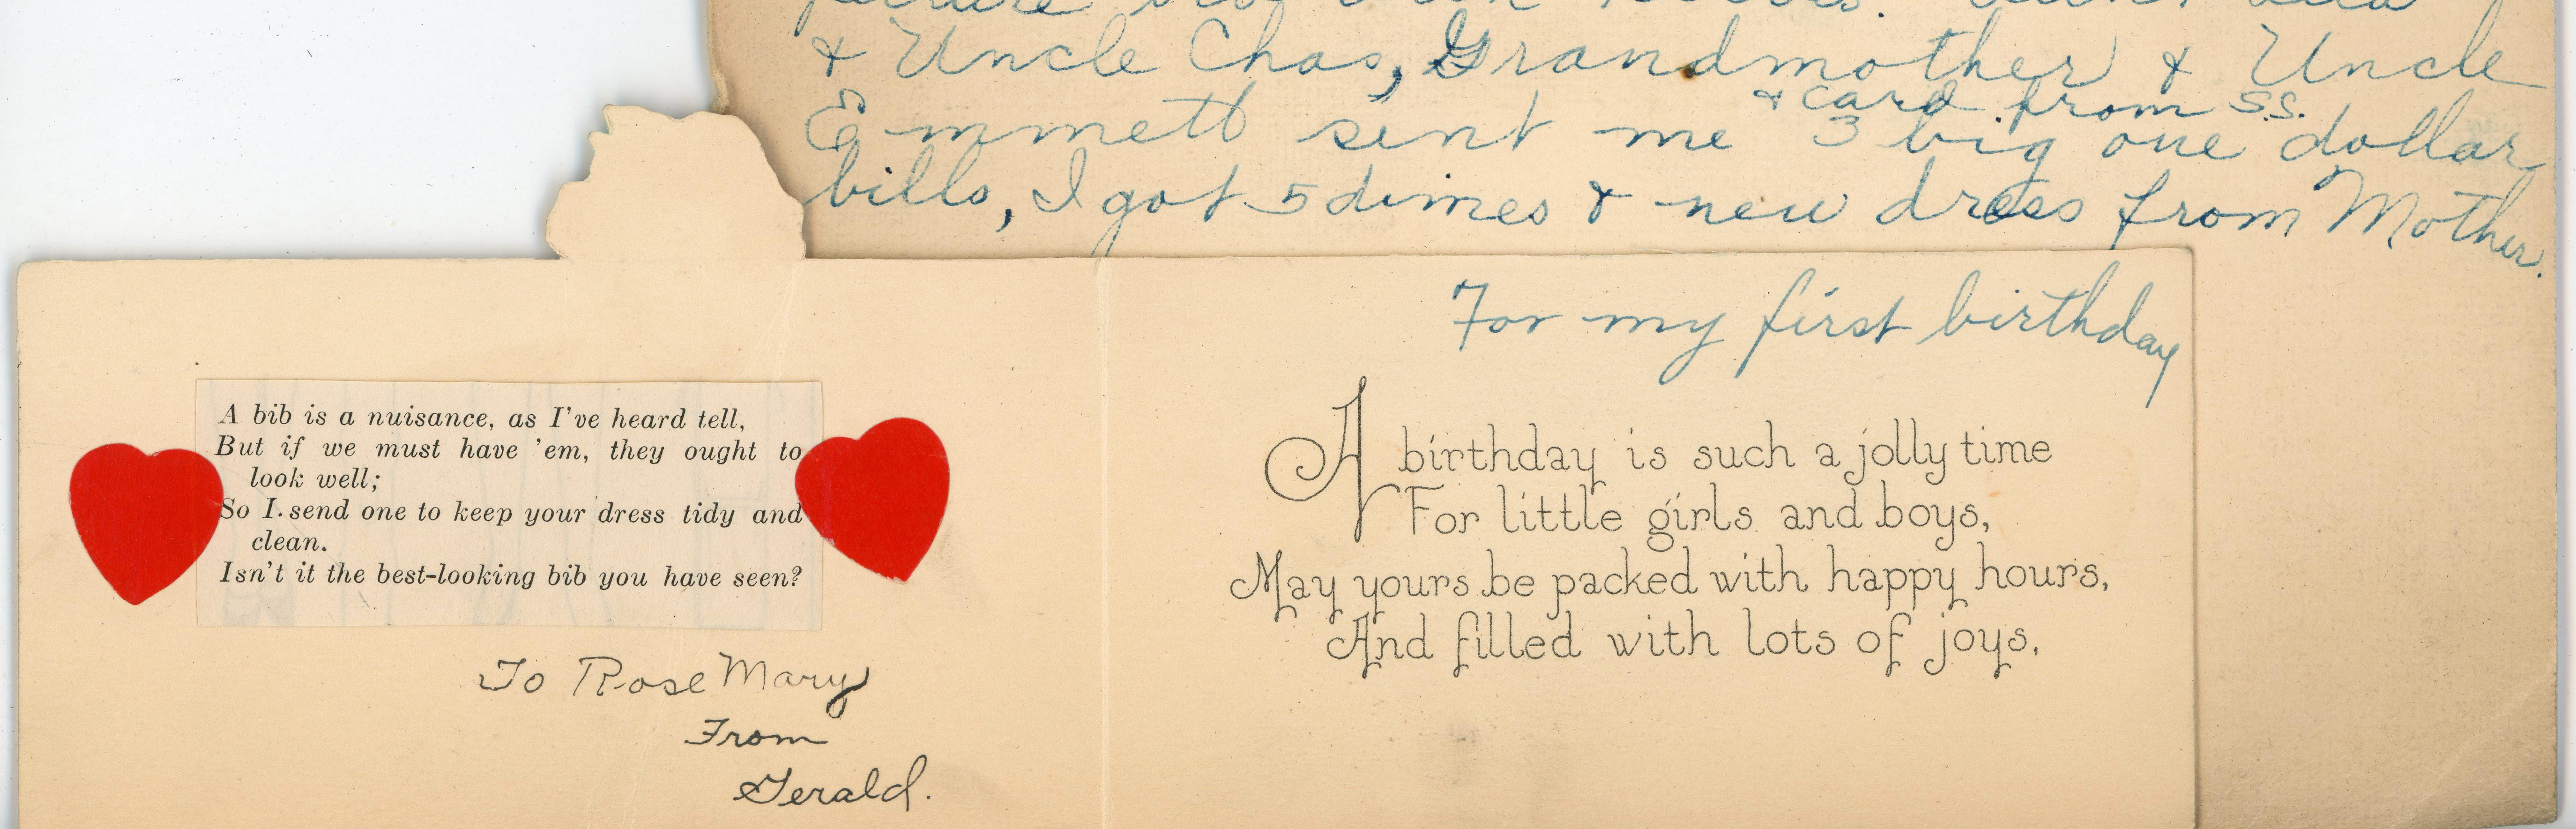 & Uncle Chas, Grandmother & Uncle
& card from S.S.
Emmett sent me 3 big one dollar
bills, I got 5 dimes & new dress from Mother.
For my first birthday
A bib is a nuisance, as I've heard tell,
But if we must have 'em, they ought to
look well;
So I send one to keep your dress tidy and
clean.
Isn't it the best-looking bib you have seen?
To Rose Mary
From
Gerald.
A birthday is such a jolly time
For little girls and boys,
May yours be packed with happy hours,
And filled with lots of joys.